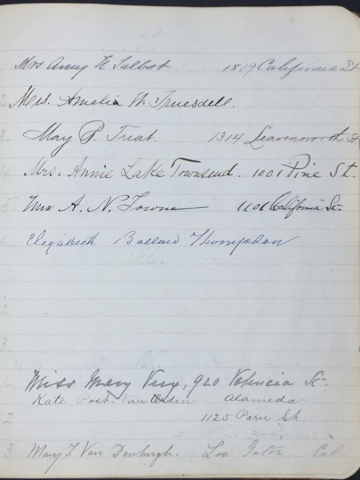 1 Mrs Amy H Talbot 1819 California St
2 Mrs. Amelia W. Truesdell.
3 May P. Treat. 1314 Leavenworth
4 Mrs. Annie Lake Townsend. 1001 Pine St.
5 Mrs A. N. Towne 1101 California St.
6 Elizabeth Ballard Thompson
Miss Mary Very, 920 Valencia St.
Kate Post Van Orden Alameda
2 1125 Paru St.
3 Mary L Van Denburgh. Los Gatos Cal